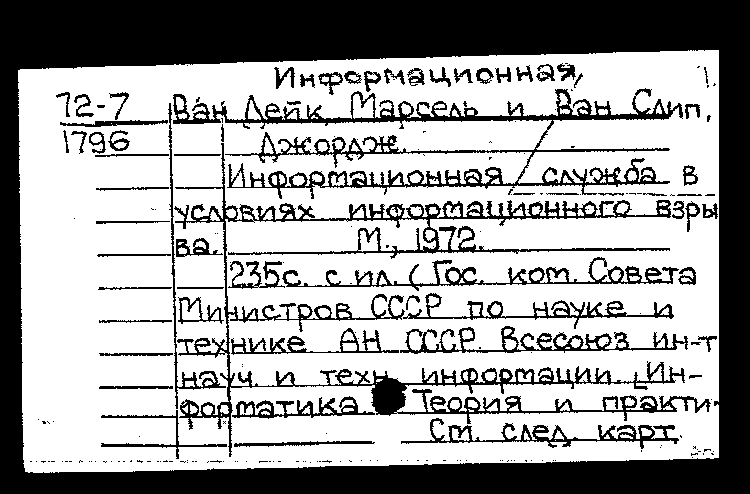 Информационная 1.
72-7 Ван Дейк, Марсель и Ван Слип,
1796 Джордж.
Информационная служба в
условиях информационного взры
ва. М., 1972.
235с. с ил. (Гос. ком. Совета
Министров СССР по науке и
технике АН СССР. Всесоюз ин-т
науч. и техн. информации. Ин-
форматика Теория и практи-
См. след. карт.